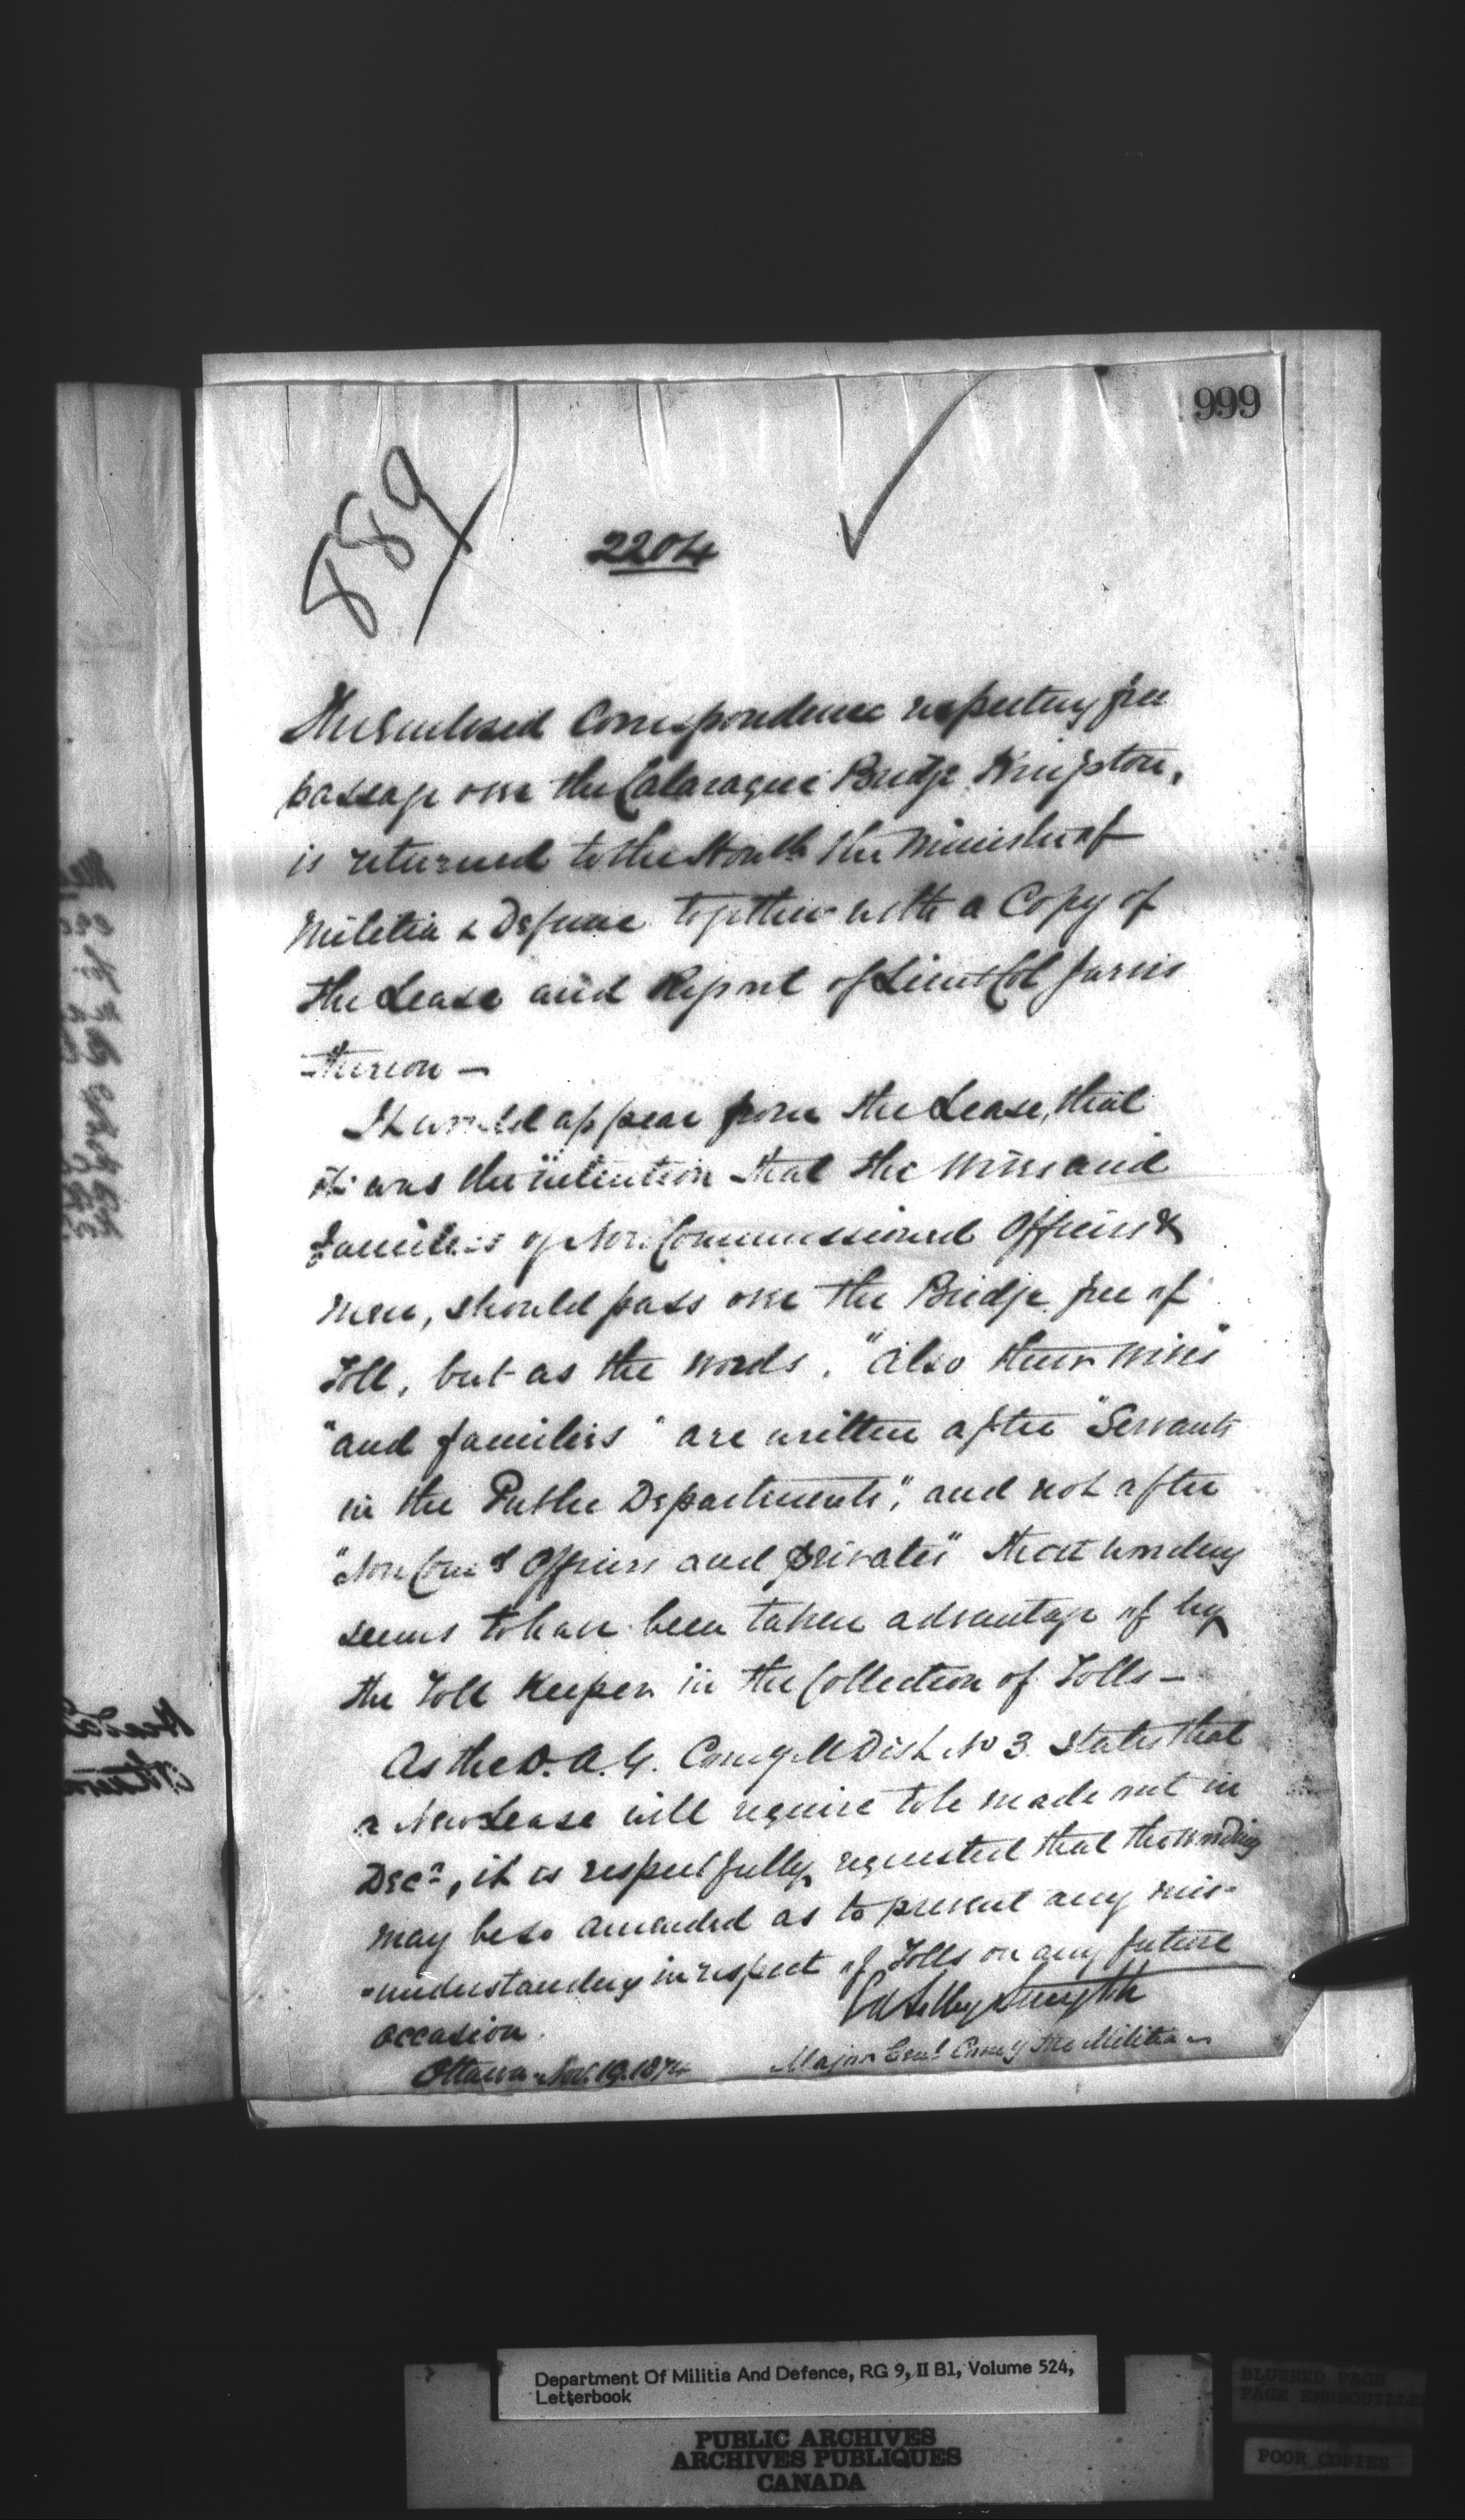 999
889
2204
The Enclosed Correspondence respecting free
passage over the Cataraqui Bridge Kingston,
is returned to the Honble the Minister of
Militia & Defence together with a Copy of
the Lease and Report of Lieut Col Jarvis
thereon —
It would appear from the Lease, that
it was the intention that the wives and
families of Non Commissioned Officers &
men, should pass over the Bridge free of
Toll, but as the words, "also their wives"
"and families" are written after "Servants
in the Public Departments", and not after
"Non Com'd Officers and privates" that wording
seems to have been taken advantage of by
the Toll Keeper in the Collection of Tolls —
As the D.A.G. Comg M Dist No 3. states that
a New Lease will require to be made out in
Decr, it is respectfully requested that the wording
may be so amended as to prevent any mis-
-understanding in respect of Tolls on any future
occasion.
Ed Selby Smyth
Ottawa Nov. 19. 1874
Major Genl Comg the Militia
Department Of Militia And Defence, RG 9, II B1, Volume 524,
Letterbook
PUBLIC ARCHIVES
ARCHIVES PUBLIQUES
CANADA
BLURRED PAGE
PAGE EMBROUILLEE
POOR COPIES